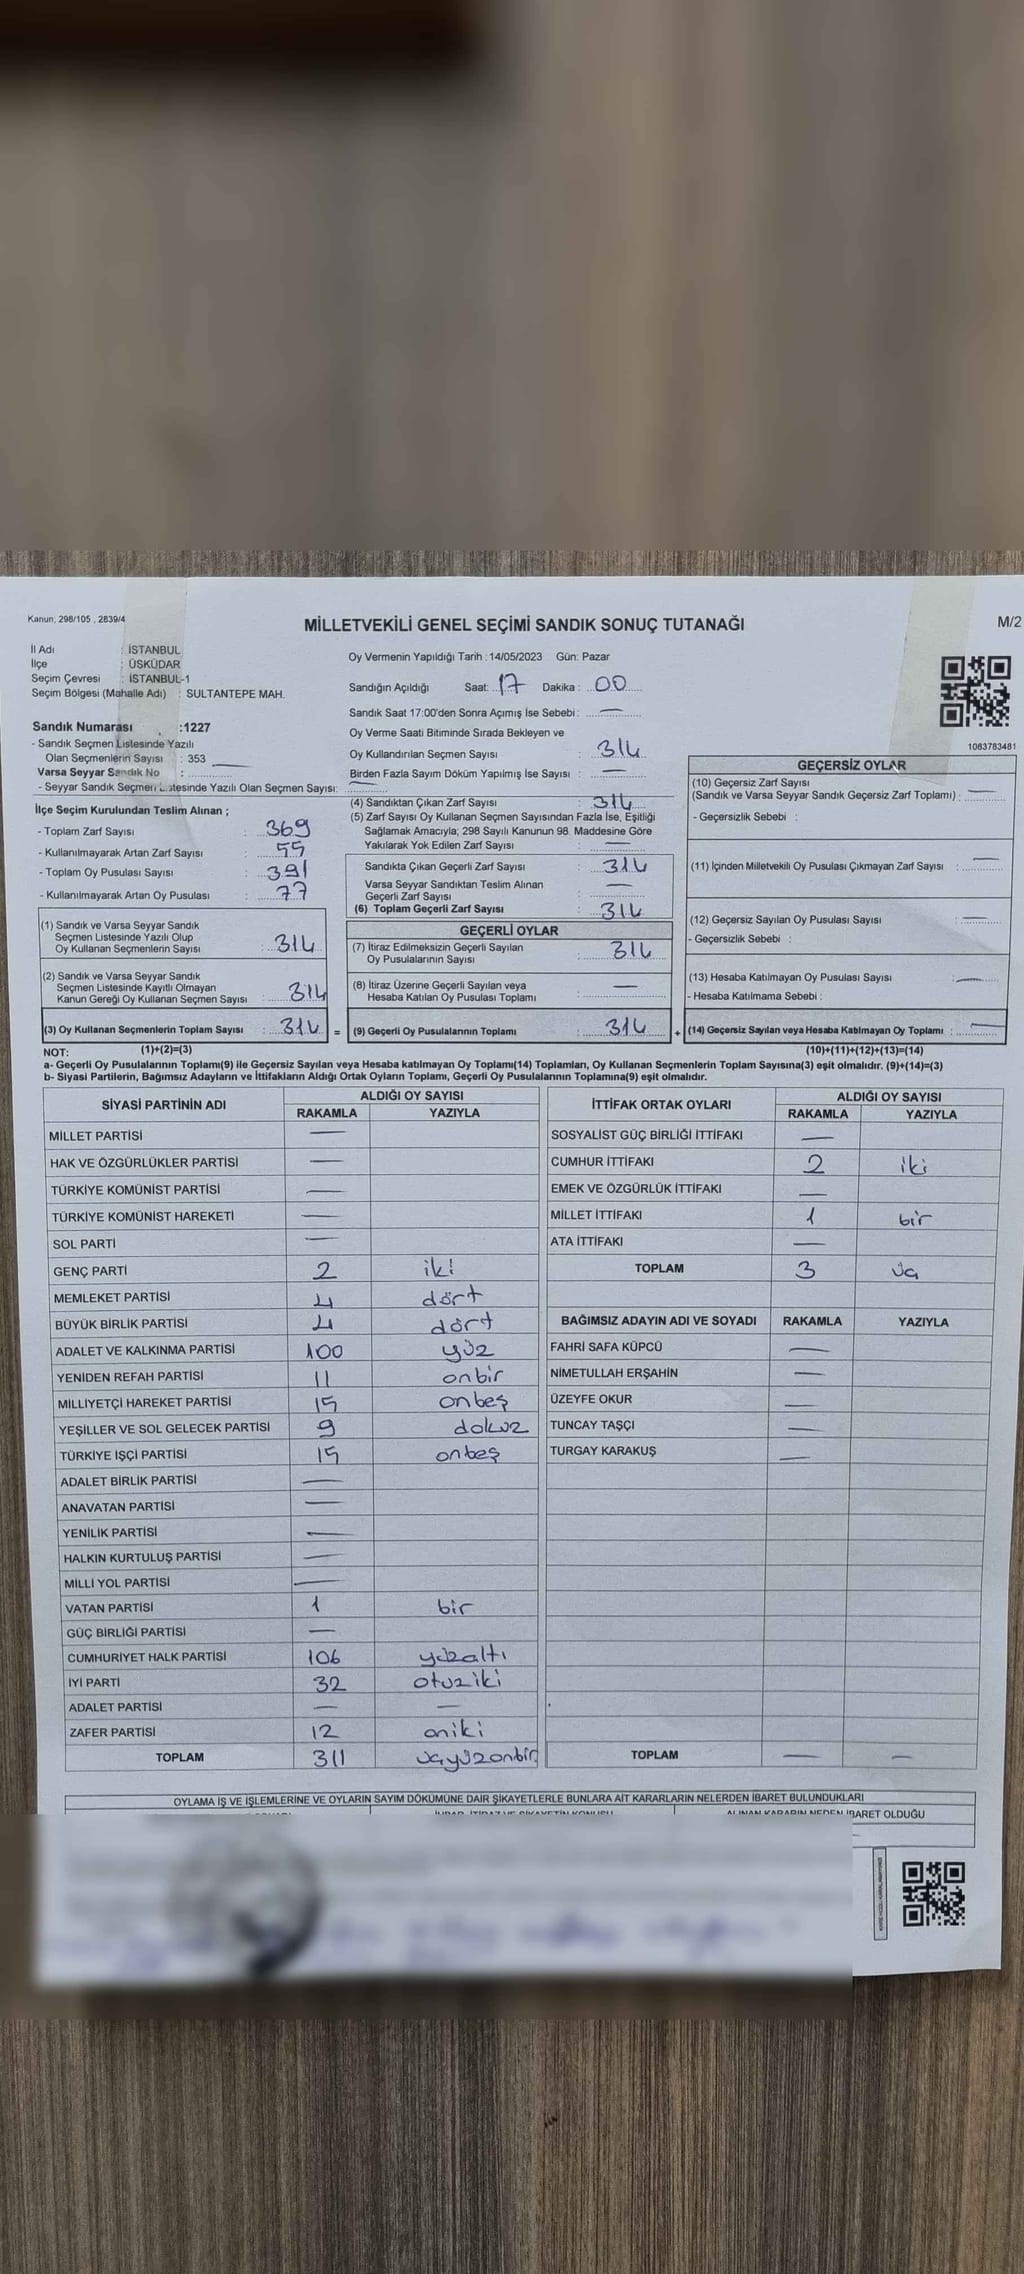 Kanun, 298/105 , 2839/4
MİLLETVEKİLİ GENEL SEÇİMİ SANDIK SONUÇ TUTANAĞI
M/2
İl Adı : İSTANBUL
İlçe : ÜSKÜDAR
Seçim Çevresi : İSTANBUL-1
Seçim Bölgesi (Mahalle Adı) : SULTANTEPE MAH.
Sandık Numarası :1227
- Sandık Seçmen Listesinde Yazılı
Olan Seçmenlerin Sayısı : 353
Varsa Seyyar Sandık No :
- Seyyar Sandık Seçmen Listesinde Yazılı Olan Seçmen Sayısı:
İlçe Seçim Kurulundan Teslim Alınan ;
- Toplam Zarf Sayısı : 369
- Kullanılmayarak Artan Zarf Sayısı : 55
- Toplam Oy Pusulası Sayısı : 391
- Kullanılmayarak Artan Oy Pusulası : 77
(1) Sandık ve Varsa Seyyar Sandık
Seçmen Listesinde Yazılı Olup
Oy Kullanan Seçmenlerin Sayısı : 314
(2) Sandık ve Varsa Seyyar Sandık
Seçmen Listesinde Kayıtlı Olmayan
Kanun Gereği Oy Kullanan Seçmen Sayısı : 314
(3) Oy Kullanan Seçmenlerin Toplam Sayısı : 314 =
(1)+(2)=(3)
Oy Vermenin Yapıldığı Tarih :14/05/2023 Gün: Pazar
Sandığın Açıldığı Saat: 17 Dakika : 00
Sandık Saat 17:00'den Sonra Açımış İse Sebebi : —
Oy Verme Saati Bitiminde Sırada Bekleyen ve
Oy Kullandırılan Seçmen Sayısı : 314
Birden Fazla Sayım Döküm Yapılmış İse Sayısı : —
(4) Sandıktan Çıkan Zarf Sayısı : 314
(5) Zarf Sayısı Oy Kullanan Seçmen Sayısından Fazla İse, Eşitliği
Sağlamak Amacıyla; 298 Sayılı Kanunun 98. Maddesine Göre
Yakılarak Yok Edilen Zarf Sayısı : —
Sandıkta Çıkan Geçerli Zarf Sayısı : 314
Varsa Seyyar Sandıktan Teslim Alınan
Geçerli Zarf Sayısı : —
(6) Toplam Geçerli Zarf Sayısı : 314
GEÇERLİ OYLAR
(7) İtiraz Edilmeksizin Geçerli Sayılan
Oy Pusulalarının Sayısı : 314
(8) İtiraz Üzerine Geçerli Sayılan veya
Hesaba Katılan Oy Pusulası Toplamı : —
(9) Geçerli Oy Pusulalarının Toplamı : 314 +
1083783481
GEÇERSİZ OYLAR
(10) Geçersiz Zarf Sayısı
(Sandık ve Varsa Seyyar Sandık Geçersiz Zarf Toplamı) : —
- Geçersizlik Sebebi :
(11) İçinden Milletvekili Oy Pusulası Çıkmayan Zarf Sayısı : —
(12) Geçersiz Sayılan Oy Pusulası Sayısı : —
- Geçersizlik Sebebi :
(13) Hesaba Katılmayan Oy Pusulası Sayısı : —
- Hesaba Katılmama Sebebi :
(14) Geçersiz Sayılan veya Hesaba Katılmayan Oy Toplamı : —
(10)+(11)+(12)+(13)=(14)
NOT:
a- Geçerli Oy Pusulalarının Toplamı(9) ile Geçersiz Sayılan veya Hesaba katılmayan Oy Toplamı(14) Toplamları, Oy Kullanan Seçmenlerin Toplam Sayısına(3) eşit olmalıdır. (9)+(14)=(3)
b- Siyasi Partilerin, Bağımsız Adayların ve İttifakların Aldığı Ortak Oyların Toplamı, Geçerli Oy Pusulalarının Toplamına(9) eşit olmalıdır.
SİYASİ PARTİNİN ADI ALDIĞI OY SAYISI
RAKAMLA YAZIYLA
MİLLET PARTİSİ —
HAK VE ÖZGÜRLÜKLER PARTİSİ —
TÜRKİYE KOMÜNİST PARTİSİ —
TÜRKİYE KOMÜNİST HAREKETİ —
SOL PARTİ —
GENÇ PARTİ 2 iki
MEMLEKET PARTİSİ 4 dört
BÜYÜK BİRLİK PARTİSİ 4 dört
ADALET VE KALKINMA PARTİSİ 100 yüz
YENİDEN REFAH PARTİSİ 11 onbir
MİLLİYETÇİ HAREKET PARTİSİ 15 onbeş
YEŞİLLER VE SOL GELECEK PARTİSİ 9 dokuz
TÜRKİYE İŞÇİ PARTİSİ 15 onbeş
ADALET BİRLİK PARTİSİ —
ANAVATAN PARTİSİ —
YENİLİK PARTİSİ —
HALKIN KURTULUŞ PARTİSİ —
MİLLİ YOL PARTİSİ —
VATAN PARTİSİ 1 bir
GÜÇ BİRLİĞİ PARTİSİ —
CUMHURİYET HALK PARTİSİ 106 yüzaltı
İYİ PARTİ 32 otuziki
ADALET PARTİSİ — —
ZAFER PARTİSİ 12 oniki
TOPLAM 311 üçyüzonbir
İTTİFAK ORTAK OYLARI ALDIĞI OY SAYISI
RAKAMLA YAZIYLA
SOSYALİST GÜÇ BİRLİĞİ İTTİFAKI —
CUMHUR İTTİFAKI 2 iki
EMEK VE ÖZGÜRLÜK İTTİFAKI —
MİLLET İTTİFAKI 1 bir
ATA İTTİFAKI —
TOPLAM 3 üç
BAĞIMSIZ ADAYIN ADI VE SOYADI RAKAMLA YAZIYLA
FAHRİ SAFA KÜPCÜ —
NİMETULLAH ERŞAHİN —
ÜZEYFE OKUR —
TUNCAY TAŞÇI —
TURGAY KARAKUŞ —
TOPLAM — —
OYLAMA İŞ VE İŞLEMLERİNE VE OYLARIN SAYIM DÖKÜMÜNE DAİR ŞİKAYETLERLE BUNLARA AİT KARARLARIN NELERDEN İBARET BULUNDUKLARI
ALINAN KARARIN NEDEN İBARET OLDUĞU